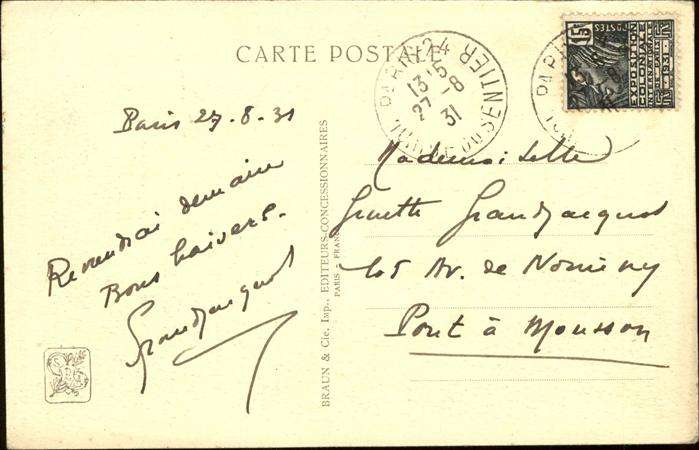 CARTE POSTALE
Paris 27-8-31
Reviendrai demain
Bons baisers.
Grandjacquot
BRAUN & Cie, Imp., EDITEURS-CONCESSIONNAIRES
PARIS - FRANCE
PARIS 24
13 15
27 - 8
31
15c
POSTES
EXPOSITION
COLONIALE
INTERNle PARIS
1931
Mademoiselle
Ginette Grandjacquot
105 Av. de Nomeny
Pont à Mousson